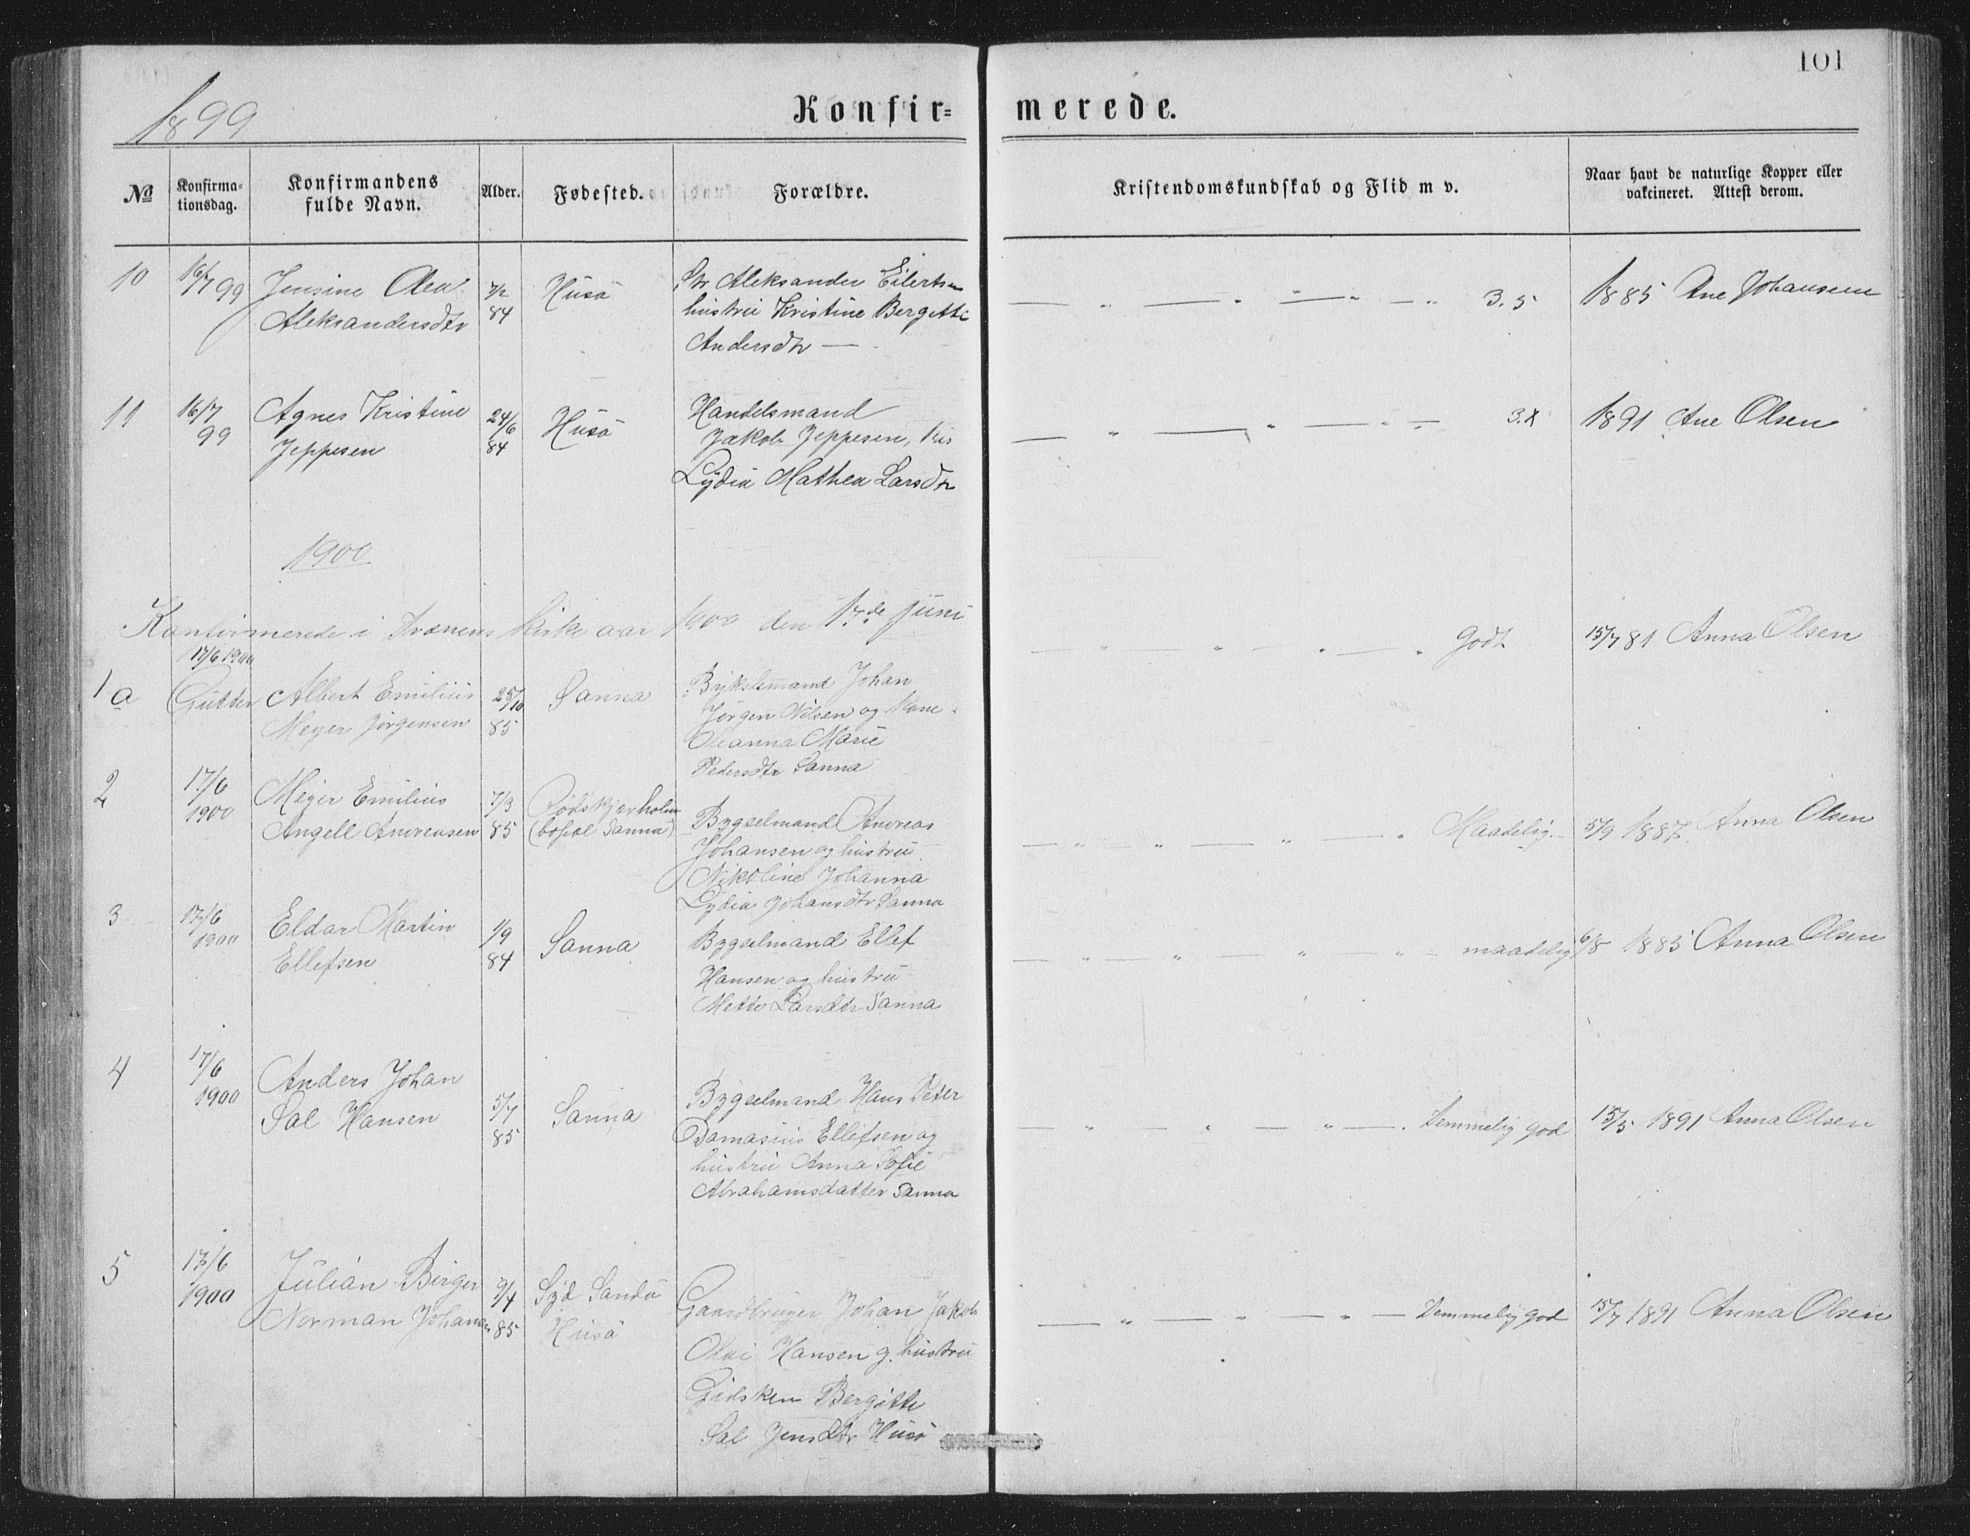 101
1899
Konfir=
merede.
No
Konfirma-
tionsdag.
Konfirmandens
fulde Navn.
Alder.
Fødested.
Forældre.
Kristendomskundskab og Flid m v.
Naar havt de naturlige Kopper eller
vakcineret. Attest derom.
10
16/7 99
Jensine Olea
Aleksandersdtr
7/2
84
Husö
Str Aleksander Eilertsen
hustru Kristine Bergitte
Andersdtr —
— „ — „ — „ — „ 3.5
1885 Ane Johansen
11
16/7
99
Agnes Kristine
Jeppesen
24/6
84
Husö
Handelsmand
Jakob Jeppesen,
Lydia Mathea Larsdtr
— „ — „ — „ —
1891 Ane Olsen
1900
Konfirmerede i Trænens Kirke aar 1900 den 17de juni
17/6 1900
1 a
Gutter
Albert Emilius
Meyer Jørgensen
25/10
85
Sanna
Bykslemand Johan
Jørgen Nilsen og
Oleanna Marie
Pedersdtr Sanna
— „ — „ — „ — „ Godt
15/7 81 Anna Olsen
2
17/6
1900
Meyer Emilius
Angell Andreasen
7/3
85
(bosat Sanna)
Bygselmand Andreas
Johansen og hustru
Nikoline Johanna
Lydia Johansdtr Sanna
— „ — „ — „ — „ Maadelig
5/9 1887 Anna Olsen
3
17/6
1900
Eldar Martin
Ellefsen
1/9
84
Sanna
Bygselmand Ellef
Hansen og hustru
Mette Larsdtr Sanna
— „ — „ — „ — „ maadelig
6/8 1885 Anna Olsen
4
17/6
1900
Anders Johan
Sal Hansen
5/7
85
Sanna
Bygselmand Hans Peter
Damasius Ellefsen og
hustru Anna Sofie
Abrahamsdatter Sanna
— „ — „ — „ — . Temmelig god
15/5 1891 Anna Olsen
5
17/6
1900
Julian Birger
Norman Johansen
9/4
85
Syd Sandö
Husö
Gaardbruger Johan Jakob
Olai Hansen g. hustru
Gidsken Bergitte
Sal Jensdtr Husö
— „ — „ — „ — Temmelig god
15/7 1891 Anna Olsen